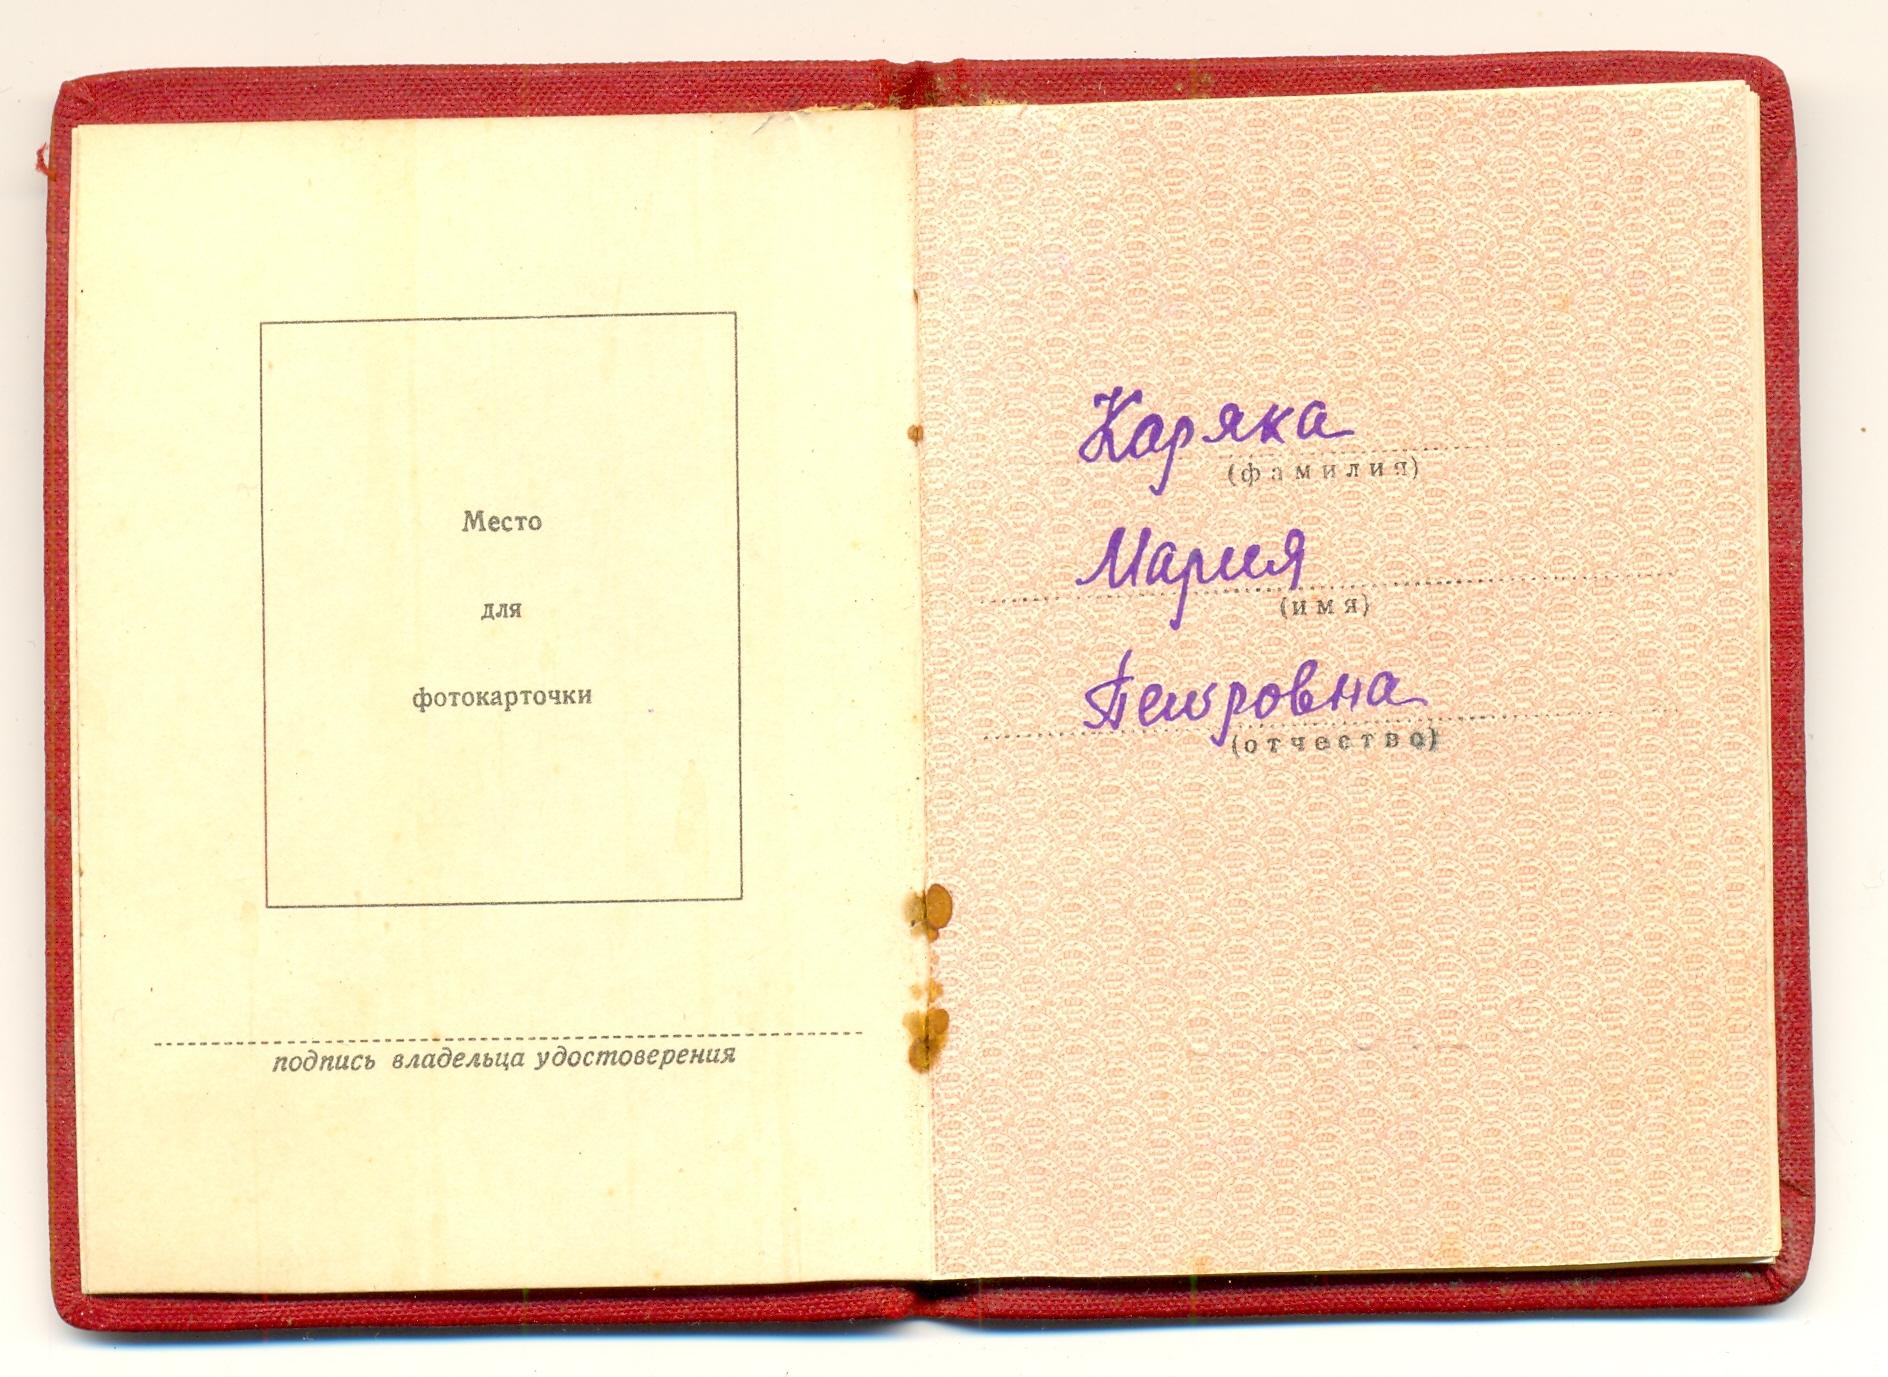 Место
для
фотокарточки
подпись владельца удостоверения
Каряка
(фамилия)
Мария
(имя)
Петровна
(отчество)